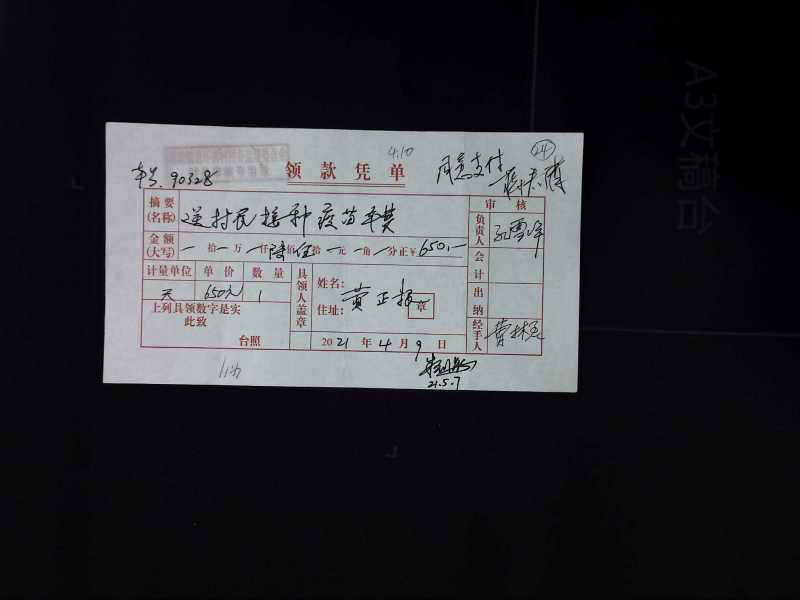 4.10
24
领款凭单
同意支付
车号: 90328
摘要(名称) 送村民接种疫苗车费
审核
金额(大写) 一拾一万一仟陆佰伍拾一元一角一分正¥650.—
负责人
会计
计量单位 单价 数量
天 650元 1
具领人盖章
姓名: 黄正
住址:
章
出纳
上列具领数字是实
此致
经手人
台照
2021年4月9日
21.5.7
A3文稿台